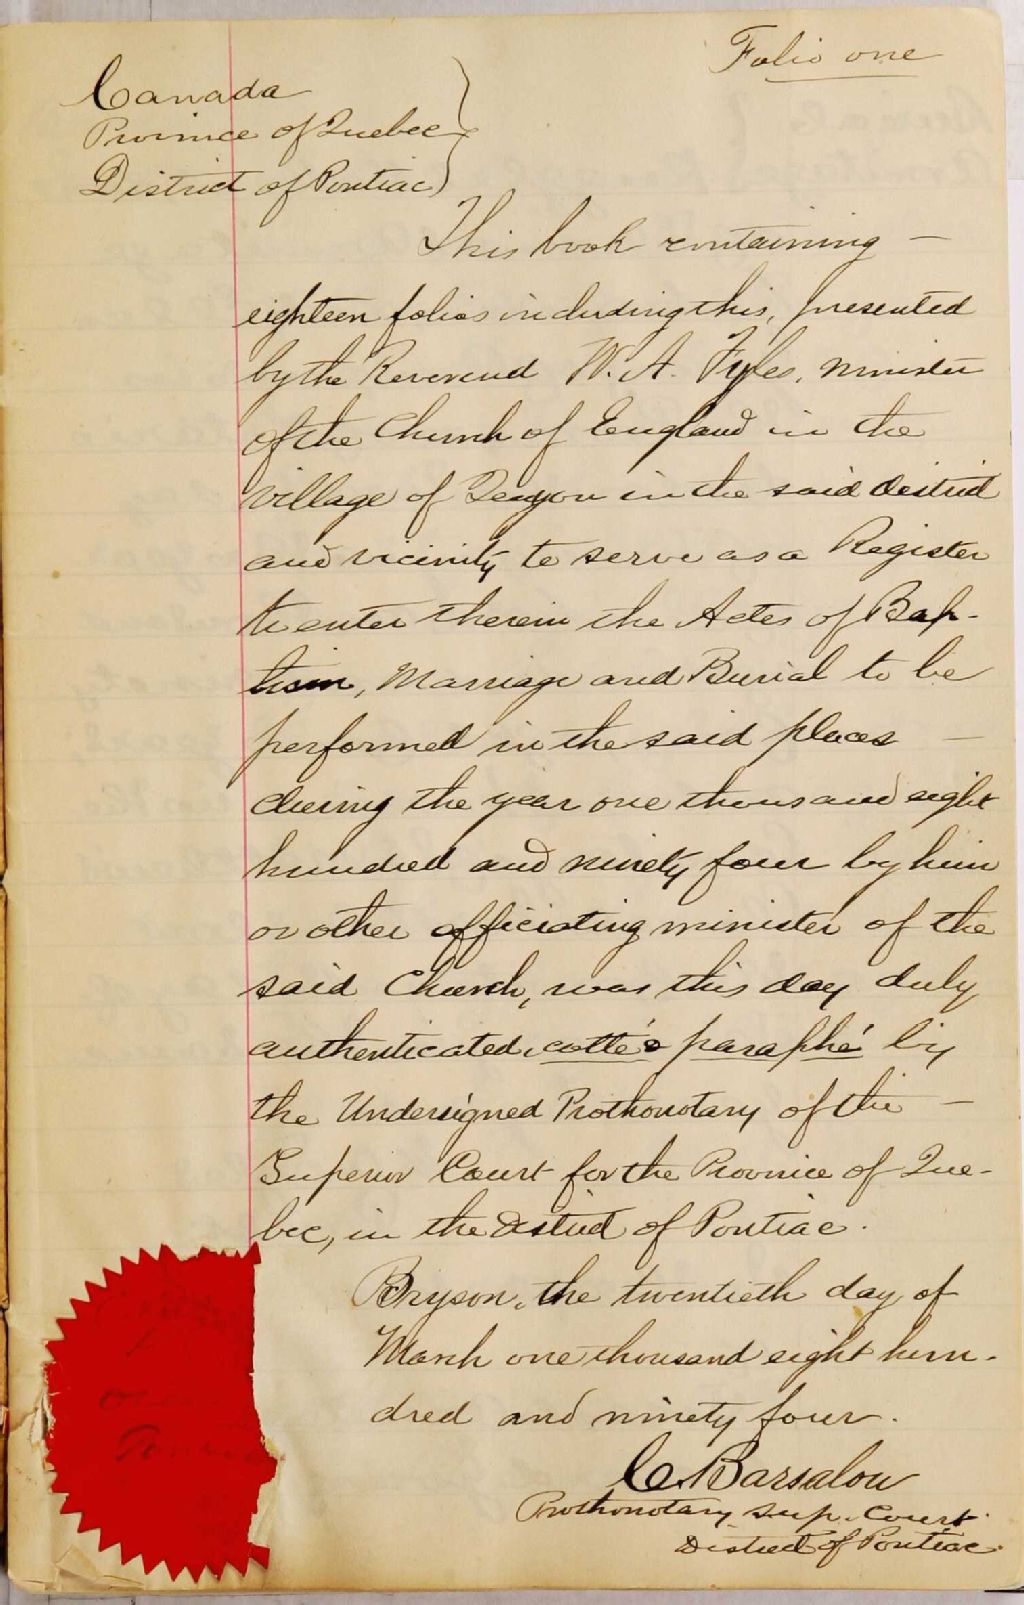 Folio one
Canada
Province of Quebec
District of Pontiac
This book containing —
eighteen folios including this, presented
by the Reverend W. A. Fyles, minister
of the Church of England in the
village of in the said district
and vicinity to serve as a Register
to enter therein the Actes of Bap-
tism, Marriage and Burial to be
performed in the said places —
during the year one thousand eight
hundred and ninety four by him
or other officiating minister of the
said Church, was this day duly
authenticated, cotté & paraphé by
the Undersigned Prothonotary of the —
Superior Court for the Province of Que-
bec, in the District of Pontiac.
Bryson, the twentieth day of
March one thousand eight hun-
dred and ninety four.
C. Barsalou
Prothonotary Sup. Court
District of Pontiac.